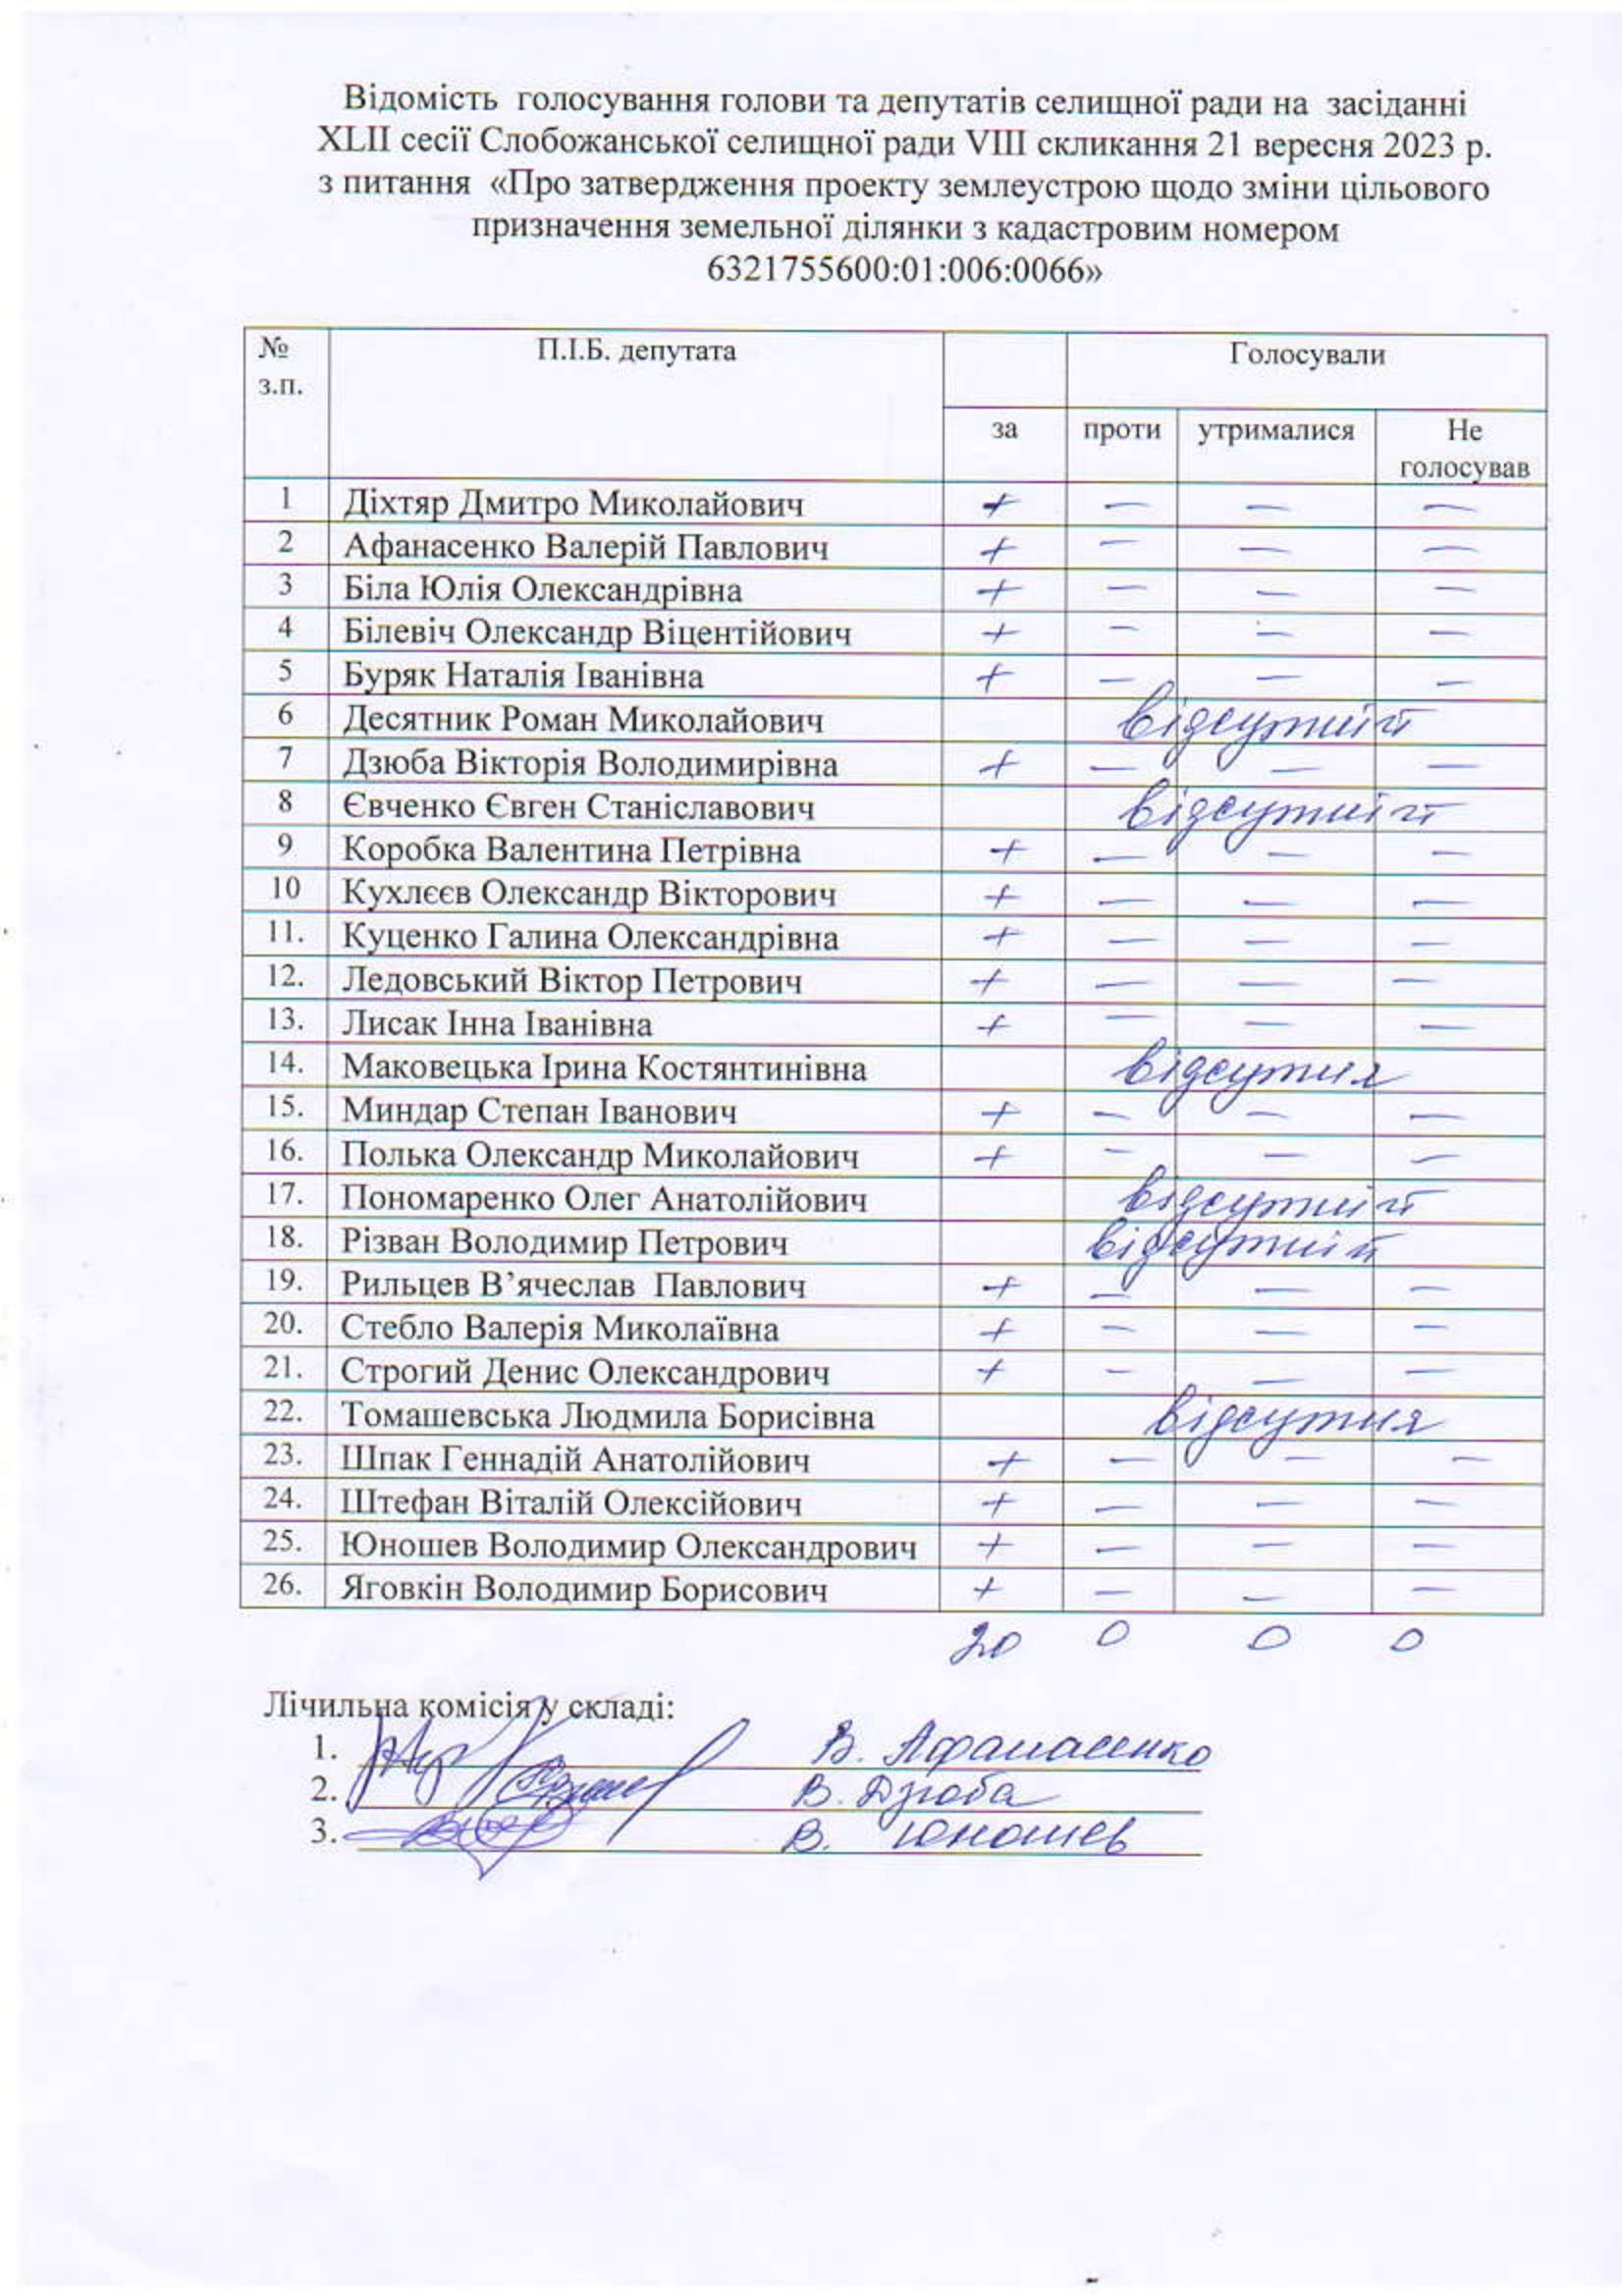 Відомість голосування голови та депутатів селищної ради на засіданні
XLII сесії Слобожанської селищної ради VIII скликання 21 вересня 2023 р.
з питання «Про затвердження проекту землеустрою щодо зміни цільового
призначення земельної ділянки з кадастровим номером
6321755600:01:006:0066»
№ з.п. П.І.Б. депутата Голосували
за проти утрималися Не голосував
1 Діхтяр Дмитро Миколайович + — — —
2 Афанасенко Валерій Павлович + — — —
3 Біла Юлія Олександрівна + — — —
4 Білевіч Олександр Віцентійович + — — —
5 Буряк Наталія Іванівна + — — —
6 Десятник Роман Миколайович відсутній
7 Дзюба Вікторія Володимирівна + — — —
8 Євченко Євген Станіславович відсутній
9 Коробка Валентина Петрівна + — — —
10 Кухлєєв Олександр Вікторович + — — —
11. Куценко Галина Олександрівна + — — —
12. Ледовський Віктор Петрович + — — —
13. Лисак Інна Іванівна + — — —
14. Маковецька Ірина Костянтинівна відсутня
15. Миндар Степан Іванович + — — —
16. Полька Олександр Миколайович + — — —
17. Пономаренко Олег Анатолійович відсутній
18. Різван Володимир Петрович відсутній
19. Рильцев В’ячеслав Павлович + — — —
20. Стебло Валерія Миколаївна + — — —
21. Строгий Денис Олександрович + — — —
22. Томашевська Людмила Борисівна відсутня
23. Шпак Геннадій Анатолійович + — — —
24. Штефан Віталій Олексійович + — — —
25. Юношев Володимир Олександрович + — — —
26. Яговкін Володимир Борисович + — — —
20 0 0 0
Лічильна комісія у складі:
1. В. Афанасенко
2. В. Дзюба
3. В. Юношев